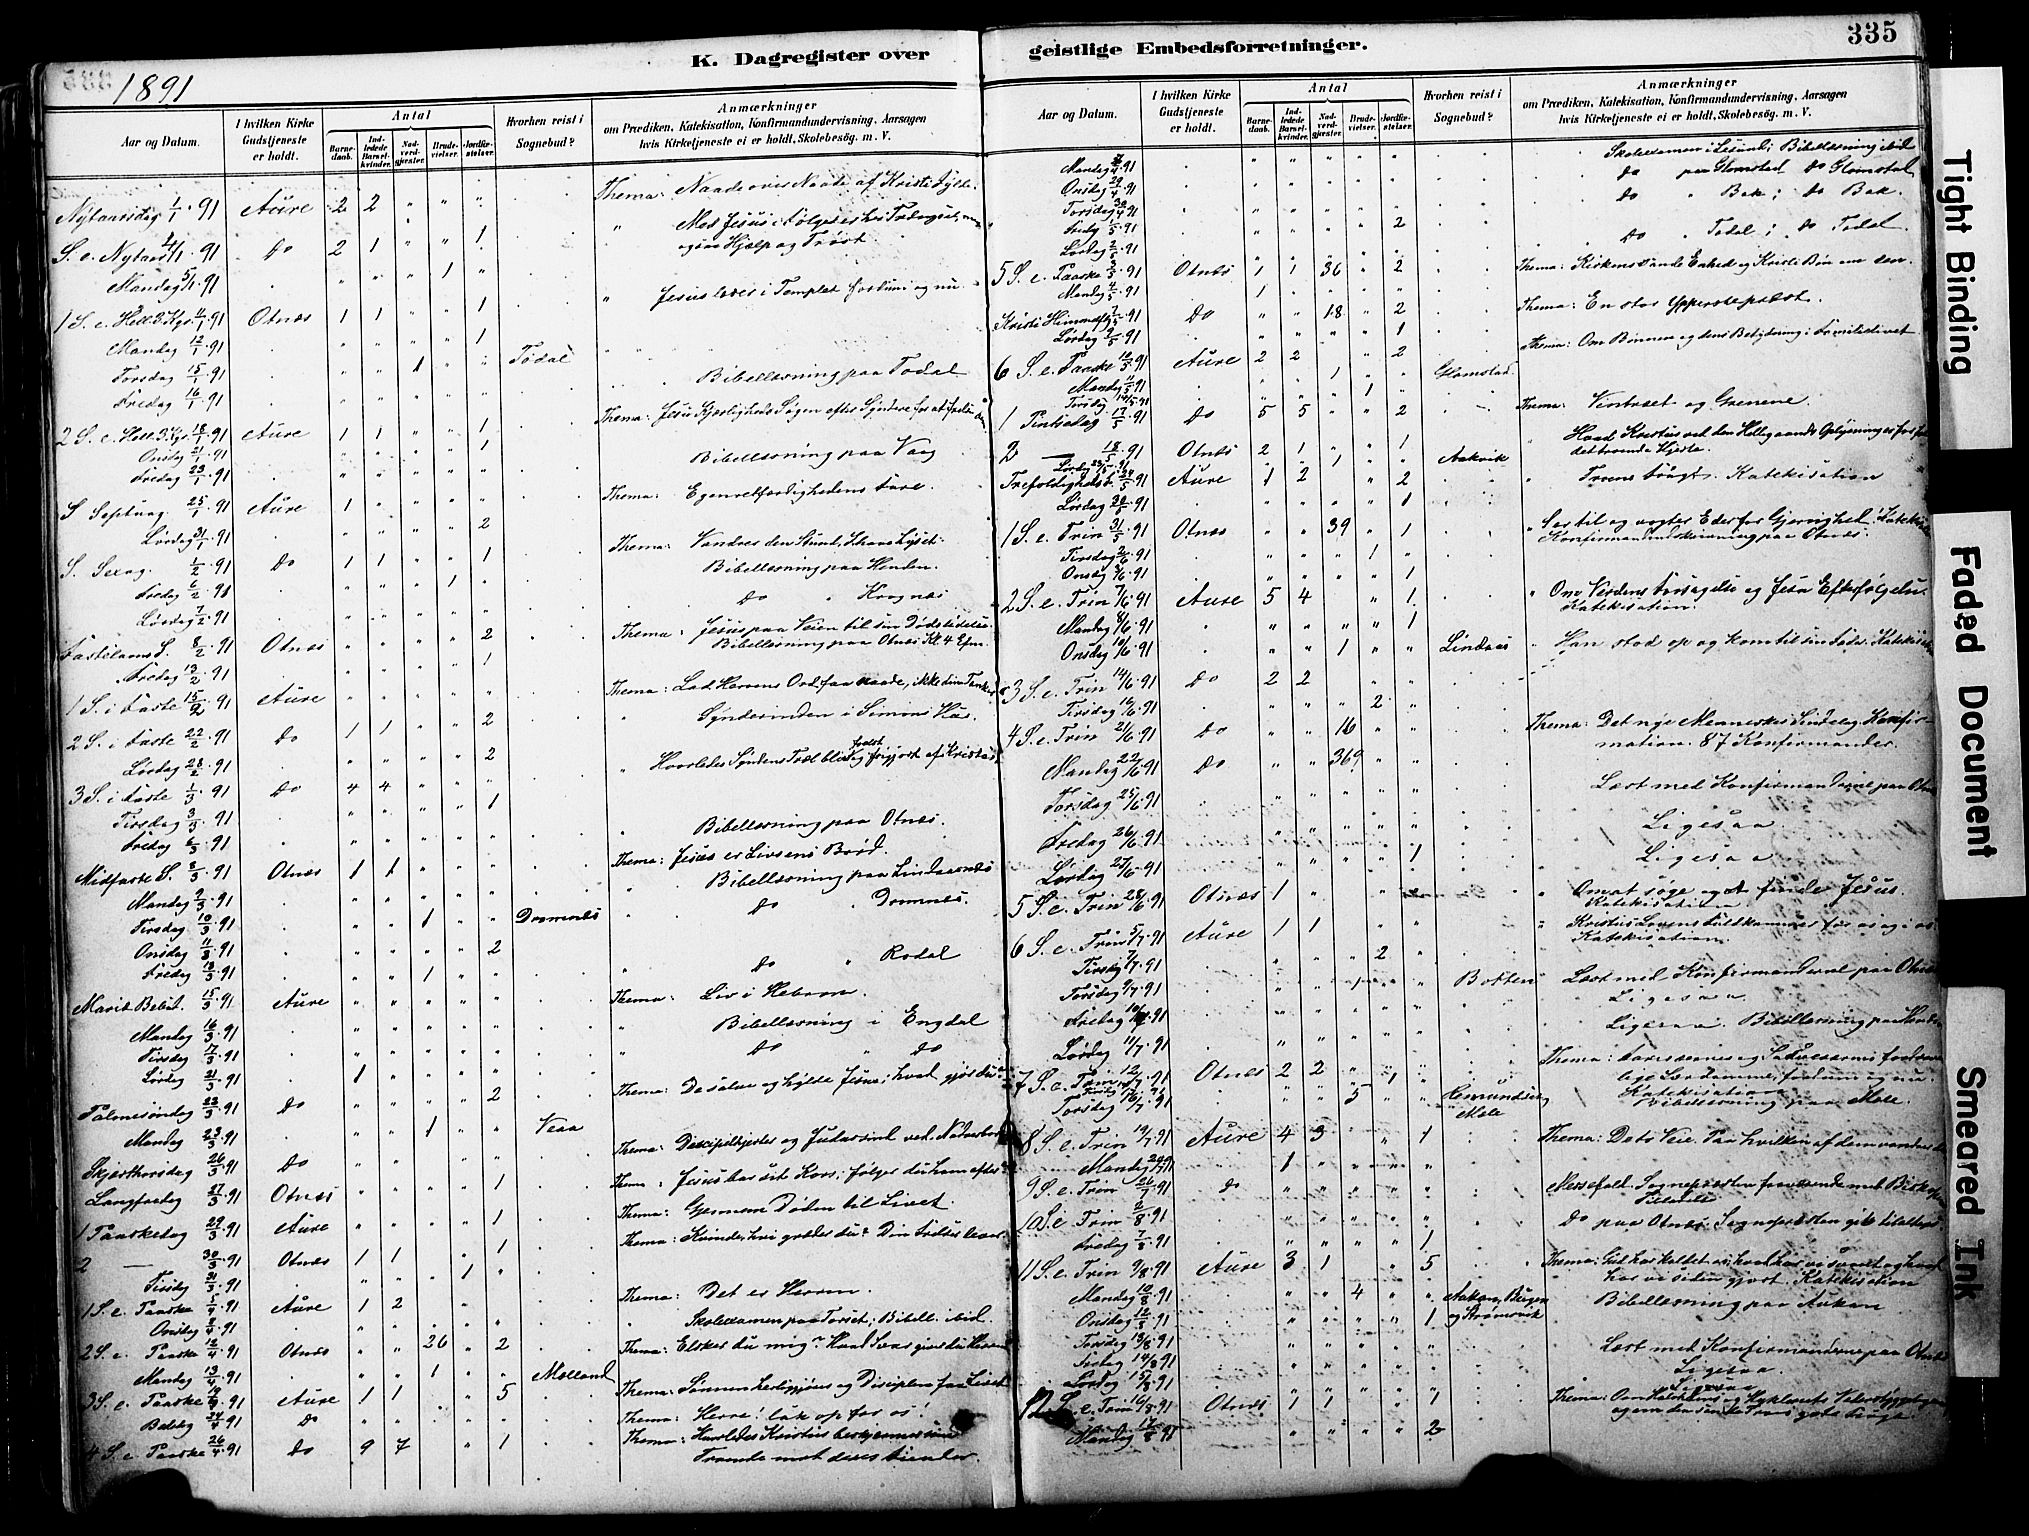 335
K. Dagregister over
1891
Aar og Datum.
I hvilken Kirke Gudstjeneste er holdt.
Antal
Barnedaab.
Indledede Barselkvinder.
Nadverdgjester.
Brudevielser.
Jordfæstelser.
Hvorhen reist i Sognebud?
Anmærkninger
om Prædiken, Katekisation, Konfirmandundervisning, Aarsagen
hvis Kirketjeneste ei er holdt, Skolebesög. m. V.
Nytaarsdag 1/1 91 Aure 2 2 " " " Thema: Naade over Naade af Kristi Fylde.
S. e. Nytaar 4/1 91 Do 2 1 " " 1 " Med Jesus i Følge
ogsaa Hjælp og Trøst
Mandag 5/1 91 " " " 1 "
1 S. e. Hell. 3 Kgr. 11/1 91 Otnæs 1 1 " " 1 " Jesus læres i Templet fordum og nu
Mandag 12/1 91 " " " " 1
Torsdag 15/1 91 " " 1 " " Todal
Fredag 16/1 91 " " " " " Bibellæsning paa Todal
2 S. e. Hell. 3 Kgr. 18/1 91 Aure 1 1 " " 1 Thema: Jesu Kjærligheds Søgen efter Syndere
Onsdag 21/1 91 " " " " 1
Fredag 23/1 91 " " " " " Bibellæsning paa Vaag
S Septuag. 25/1 91 Aure 1 " " " " Thema: Egenretfærdighedens Fare.
Lørdag 31/1 91 " " " " 2
S. Sexag. 1/2 91 Do 1 1 " " 1 Thema: Vandrer den Stund, I have Lyset.
Fredag 6/2 91 " " " 1 " Bibellæsning paa Henden.
Lørdag 7/2 91 " " " " " Do " Krognæs
Fastelavns S. 8/2 91 Otnæs " " " " 2 Thema: Jesus paa Veien til sin Død
Bibellæsning paa Otnæs Kl. 4 Efm.
Fredag 13/2 91 " " " " 1
1 S. i Faste 15/2 91 Aure " " " " " Thema: Lad Herrens Ord faa raade, ikke dine Tanker
2 S. i Faste 22/2 91 Do 1 1 " " 2 " Synderinden i Simons Hus.
Lørdag 28/2 91 " " " " 2
3 S. i Faste 1/3 91 Do 4 4 " " " " Hvorledes Syndens Træl bliver først frigjort af Kristus
Tirsdag 3/3 91 " " " " 1
Fredag 6/3 91 " " " " " " Bibellæsning paa Otnæs.
Midfaste S. 8/3 91 Otnæs 1 1 " " " Thema: Jesus er Livsens Brød.
Mandag 9/3 91 " " " " " " Bibellæsning paa Lindaasnæs
Tirsdag 10/3 91 " " 1 " " Dromnæs " Do " Dromnæs.
Onsdag 11/3 91 " " " " 2
Fredag 13/3 91 " " " 1 " " Do " Rodal
Mariæ Bebud. 15/3 91 Aure " " " " " Thema: Liv i Herren.
Mandag 16/3 91 " " " " " " Bibellæsning i Engdal
Tirsdag 17/3 91 " " " " " " Do " Do
Lørdag 21/3 91 1 " " " "
Palmesøndag 22/3 91 Do " " " " 2 Thema: De salve og hylde Jesus; hvad gjør du?
Mandag 23/3 91 " " 1 " " Vean
Skjærthorsdag 26/3 91 Do " " " " " Thema: Discipelkjertes og Judassind ved Nadverbordet
Langfredag 27/3 91 Otnæs " " " " 1 Thema: Jesus bar sit Kors; følger du ham efter?
1 Paaskedag 29/3 91 Aure " " " " 1 Thema: Gjennem Døden til Livet
2 — 30/3 91 Otnæs 1 1 " " 1 Thema: Kvinde, hvi græder du? Din Frelser lever.
Tirsdag 31/3 91 " " " 1 "
1 S. e. Paaske 5/4 91 Aure 1 2 " " " Thema: Det er Herren.
Onsdag 8/4 91 " " " " " Skoleexamen paa Torset; Bibell. ibid
2 S. e. Paaske 12/4 91 Otnæs " " 26 " 2 Thema: Elsker du mig? Hvad Svar giver du Herren
Mandag 13/4 91 " " 1 " " Molland
3 S. e. Paaske 19/4 91 Aure 1 1 " " 5 Thema: Sønnen herliggjøres og Disciplene faa Livet
Bededag 24/4 91 Do " " " " " Thema: Herre! luk op for os!
4 S. e. Paaske 26/4 91 Do 9 7 " " 1 Thema: Hvorledes Kristus beskjermer sine
Troende mod deres Fiender.
geistlige Embedsforretninger.
Aar og Datum.
I hvilken Kirke Gudstjeneste er holdt.
Antal
Barnedaab.
Indledede Barselkvinder.
Nadverdgjester.
Brudevielser.
Jordfæstelser.
Hvorhen reist i Sognebud?
Anmærkninger
om Prædiken, Katekisation, Konfirmandundervisning, Aarsagen
hvis Kirketjeneste ei er holdt, Skolebesög. m. V.
Mandag 27/4 91 " " " " " Skoleexamen i Lesund; Bibellæsning ibid
Onsdag 29/4 91 " " " " " Do paa Glomstad Do Glomstad
Torsdag 30/4 91 " " " " " Do " Bak; Do Bak.
Fredag 1/5 91 " " " " 2
Lørdag 2/5 91 " " " " " Do " Todal; Do Todal.
5 S. e. Paaske 3/5 91 Otnæs 1 1 36 " 2 Thema: Kirkens sande Enhed og Kristi Bøn om den.
Mandag 4/5 91 1 " " " "
Kristi Himmelfg. 7/5 91 Do " " 18 " 2 Thema: En stor Ypperstepræst.
Lørdag 9/5 91 " " " " 1
6 S. e. Paaske 10/5 91 Aure 2 2 " " 2 Thema: Om Bønnen og dens Betydning i Familielivet
Mandag 11/5 91 " " 1 " " Glomstad.
Torsdag 14/5 91 " " " 1 "
1 Pintsedag 17/5 91 Do 5 5 " " 2 Thema: Vintræet og Grenene.
2 — 18/5 91 Otnæs 2 1 " " 1 " Hvad Kristus ved den Helligaands Oplysning er for
det troende Hjerte.
Lørdag 23/5 91 " " 1 " " Aakvik
Trefoldigheds F. 24/5 91 Aure 1 2 " " 2 " Troens Frugt. Katekisation
Lørdag 30/5 91 " " " " 1
1 S. e. Trin 31/5 91 Otnæs " " 39 " 1 " Ser til og vogter Eder for Gjerrighed.
Konfirmandindskrivning paa Otnæs.
Tirsdag 2/6 91 " " " 1 "
Onsdag 3/6 91 " " " " 1
2 S. e. Trin 7/6 91 Aure 5 4 " " 1 " Om Verdens Forsagelse og Jesu Efterfølgelse.
Katekisation.
Mandag 8/6 91 " " " " 1
Onsdag 10/6 91 " " 1 " " Lindaas
3 S. e. Trin 14/6 91 Do 2 2 " " " " Han stod op og kom til sin Fader.
Tirsdag 16/6 91 " " " 2 "
4 S. e. Trin 21/6 91 Do " " 16 " " Thema: Det nye Menneskes Sindelag. Konfirmation. 87 Konfirmander.
Mandag 22/6 91 Do " " 369 " "
Torsdag 25/6 91 " " " " " Læst med Konfirmanderne paa Otnæs
Fredag 26/6 91 " " " " " Ligesaa
Lørdag 27/6 91 " " " " 1 Ligesaa
5 S. e. Trin 28/6 91 Otnæs 1 " " " " " Om at søge og at finde Jesus.
Katekisation
6 S. e. Trin 5/7 91 Aure 1 1 " " " " Kristus Lovens Fuldkommer for os og i os.
Katekisation.
Tirsdag 7/7 91 " " " 2 "
Torsdag 9/7 91 " " 1 " " Botten Læst med Konfirmanderne paa Otnæs
Fredag 10/7 91 " " " " " Ligesaa
Lørdag 11/7 91 " " " " " Ligesaa. Bibellæsning paa
7 S. e. Trin 12/7 91 Otnæs 2 2 " " " Thema: Farisæernes og Sadducæernes
fordum og nu.
Katekisation
Tirsdag 14/7 91 " " " 1 "
Torsdag 16/7 91 " " 5 " " Mele Bibellæsning paa Mele.
8 S. e. Trin 19/7 91 Aure 4 3 " " 1 Thema: De to Veie. Paa hvilken af dem vandrer du
Mandag 20/7 91 1 " " " "
9 S. e. Trin 26/7 91 Do " " " " " Messefald. Sognepræsten fraværende med Biskopens
Tilladelse
10 S. e. Trin 2/8 91 " " " " " Do paa Otnæs. Sognepræsten
Fredag 7/8 91 " " " " 1
11 S. e. Trin 9/8 91 Aure 3 1 " " 5 Thema: Gud har kaldet os; hvad har vi svaret og hvad
har vi siden gjort. Katekisation
Mandag 10/8 91 " " 4 " " Aakan, Bugen Bibellæsning paa Aukan
Onsdag 12/8 91 " " " " 1 og Strømsvik
Torsdag 13/8 91 " " " " " Læst med Konfirmanderne paa Otnæs
Fredag 14/8 91 " " " " " Ligesaa
Lørdag 15/8 91 " " " " " Ligesaa
12 S. e. Trin 16/8 91 Otnæs 1 1 " " 1 Thema: Om
og om den sande Troes gode
Mandag 17/8 91 " " " " 2
Tight Binding
Faded Document
Smeared Ink